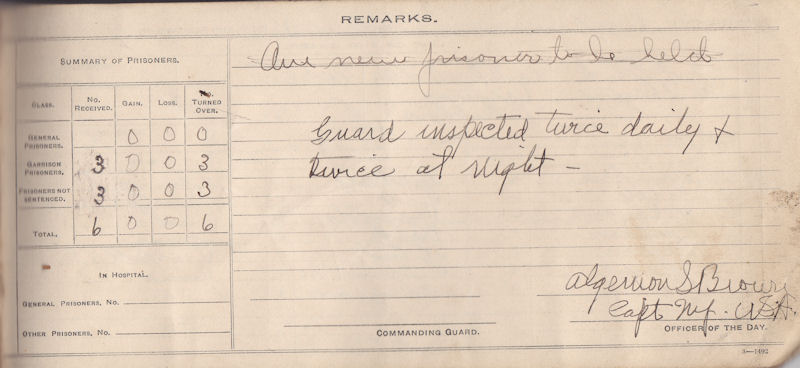 REMARKS.
SUMMARY OF PRISONERS.
CLASS. No. RECEIVED. GAIN. LOSS. No. TURNED OVER.
GENERAL PRISONERS. 0 0 0
GARRISON PRISONERS. 3 0 0 3
PRISONERS NOT SENTENCED. 3 0 0 3
TOTAL. 6 0 0 6
IN HOSPITAL.
GENERAL PRISONERS, No.
OTHER PRISONERS, No.
new prisoner to be held
Guard inspected twice daily &
twice at night –
COMMANDING GUARD.
Algernon S Brown
Capt Inf. USA.
OFFICER OF THE DAY.
3—1492